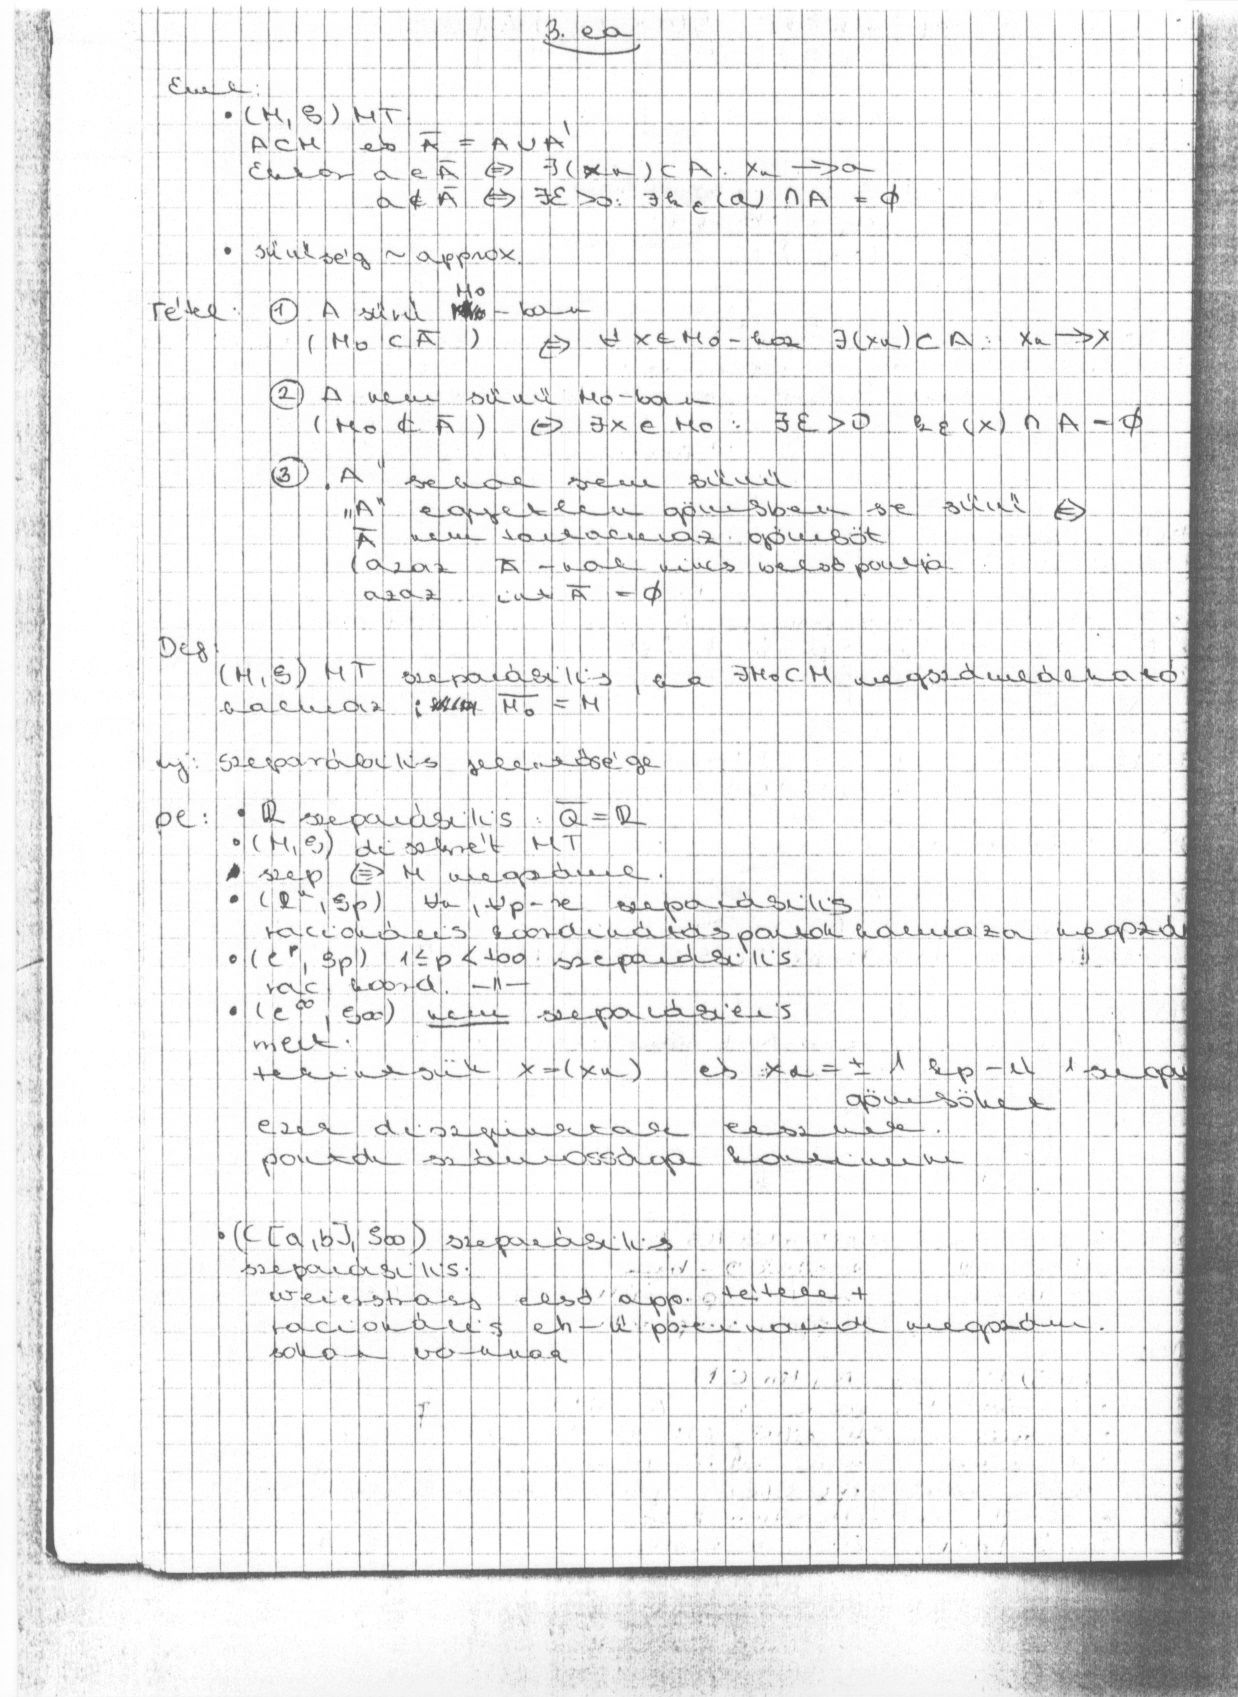 3. ea
Eml:
• (M, ρ) MT
A⊂M és A̅ = A∪A'
Ekkor a∈A̅ ⇔ ∃(xn)⊂A: xn → a
a∉A̅ ⇔ ∃ε>0: ∃kε(a)∩A = ∅
• sűrűség ~ approx.
Tétel: ① A sűrű M0-ban
(M0⊂A̅) ⇔ ∀x∈M0-hoz ∃(xn)⊂A: xn → x
② A nem sűrű M0-ban
(M0⊄A̅) ⇔ ∃x∈M0: ∃ε>0 kε(x)∩A = ∅
③ „A" sehol sem sűrű
„A" egyetlen gömbben se sűrű ⇔
A̅ nem tartalmaz gömböt
(azaz A̅-nak nincs belső pontja
azaz int A̅ = ∅
Def:
(M, ρ) MT szeparábilis, ha ∃M0⊂M megszámlálható
halmaz: M̅0̅ = M
mj: szeparábilis jelentősége
pl: • ℝ szeparábilis: Q̅ = ℝ
• (M, ρ) diszkrét MT
szep ⇔ M megszáml.
• (ℝⁿ, ρp) ∀n, ∀p-re szeparábilis
racionális koordinátás pontok halmaza megszá
• (lᵖ, ρp) 1≤p<+∞ szeparábilis
rac koord. –"–
• (l^∞, ρ∞) nem szeparábilis
mert:
tekintsük x=(xn) és xn = ± 1 kp-ú 1 sugar
gömböket
ezek diszjunktak lesznek.
pontok számossága kontinuum
• (C[a,b], ρ∞) szeparábilis
szeparábilis:
Weierstrass első app. tétele +
racionális eh-ú polinomok megszám.
sokan vannak